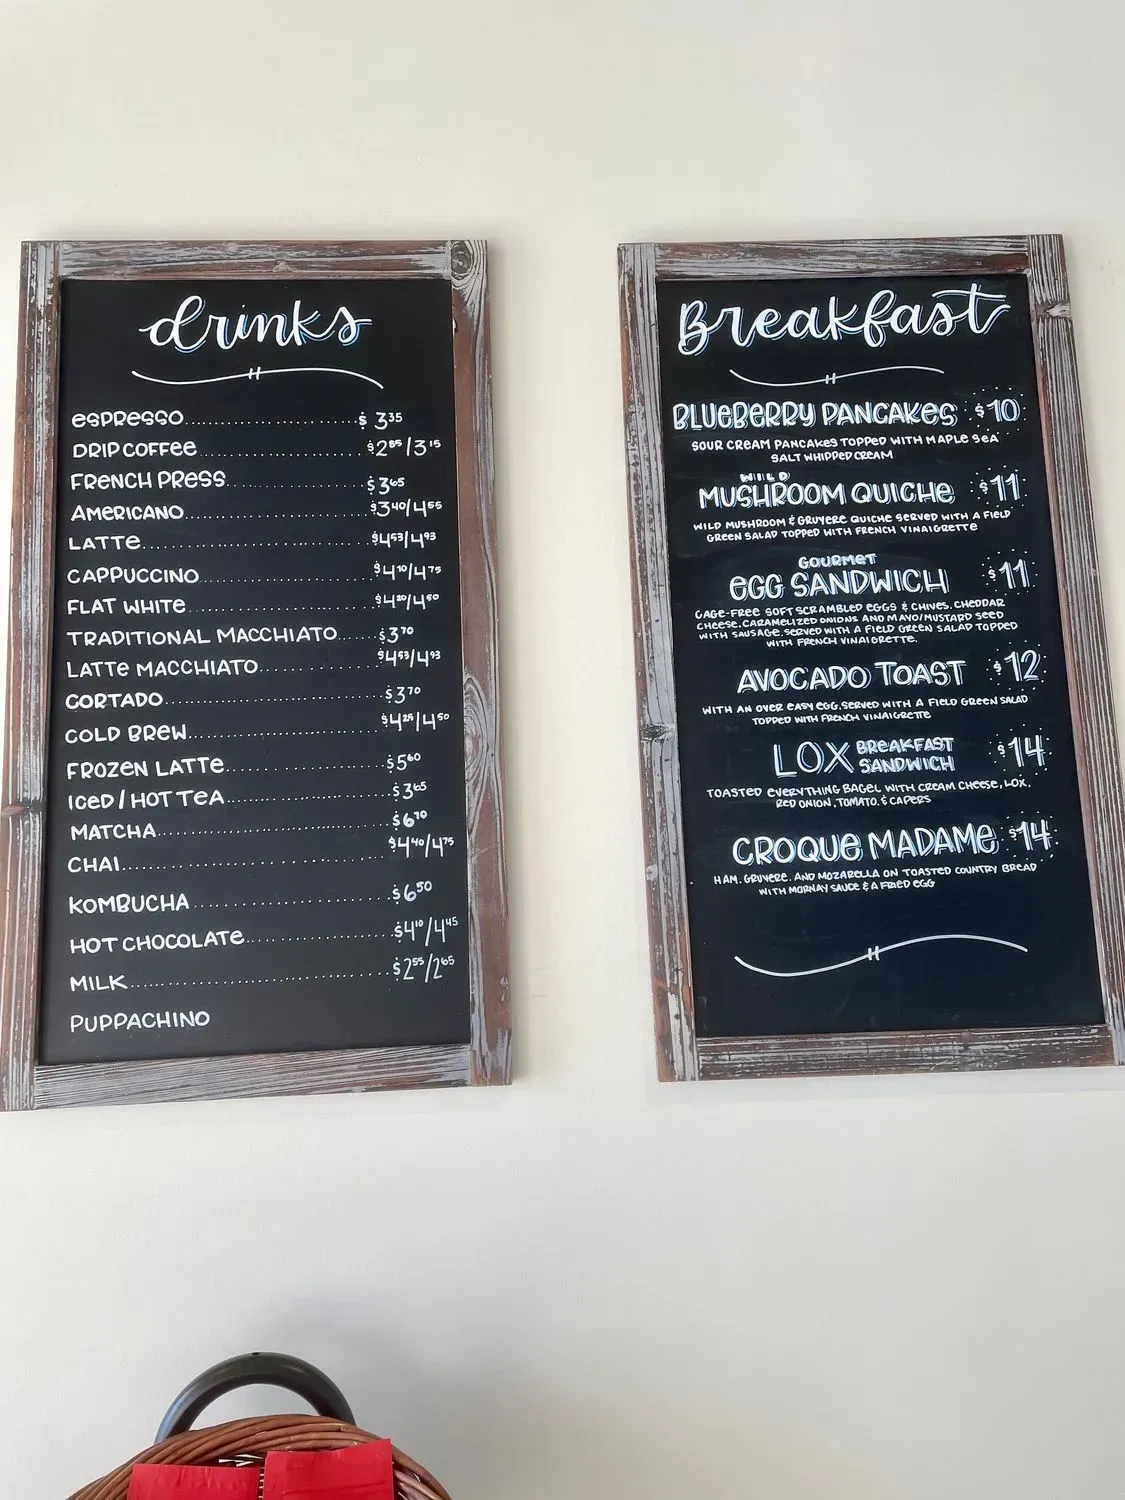 drinks
ESPRESSO $3.35
DRIP COFFEE $2.85/3.15
FRENCH PRESS $3.65
AMERICANO $3.40/4.55
LATTE $4.53/4.93
CAPPUCCINO $4.10/4.75
FLAT WHITE $4.20/4.50
TRADITIONAL MACCHIATO $3.70
LATTE MACCHIATO $4.53/4.93
CORTADO $3.70
COLD BREW $4.25/4.50
FROZEN LATTE $5.60
ICED/HOT TEA $3.65
MATCHA $6.70
CHAI $4.40/4.75
KOMBUCHA $6.50
HOT CHOCOLATE $4.10/4.45
MILK $2.55/2.65
PUPPACHINO
Breakfast
BLUEBERRY PANCAKES $10
SOUR CREAM PANCAKES TOPPED WITH MAPLE SEA
SALT WHIPPED CREAM
WILD
MUSHROOM QUICHE $11
WILD MUSHROOM & GRUYERE QUICHE SERVED WITH A FIELD
GREEN SALAD TOPPED WITH FRENCH VINAIGRETTE
GOURMET
EGG SANDWICH $11
CAGE-FREE SOFT SCRAMBLED EGGS & CHIVES, CHEDDAR
CHEESE, CARAMELIZED ONIONS AND MAYO/MUSTARD SEED
WITH SAUSAGE. SERVED WITH A FIELD GREEN SALAD TOPPED
WITH FRENCH VINAIGRETTE.
AVOCADO TOAST $12
WITH AN OVER EASY EGG, SERVED WITH A FIELD GREEN SALAD
TOPPED WITH FRENCH VINAIGRETTE
LOX BREAKFAST SANDWICH $14
TOASTED EVERYTHING BAGEL WITH CREAM CHEESE, LOX,
RED ONION, TOMATO, & CAPERS
CROQUE MADAME $14
HAM, GRUYERE, AND MOZARELLA ON TOASTED COUNTRY BREAD
WITH MORNAY SAUCE & A FRIED EGG